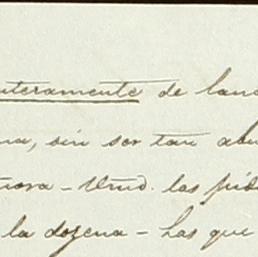 nteramente de lana
na, sin ser tan abu
nora - Vmd. las pid
la dozena - Las que